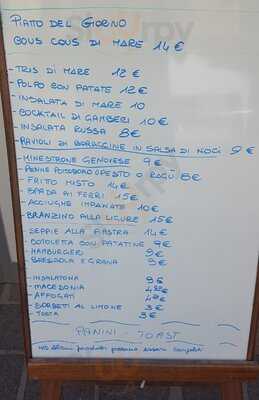 PIATTO DEL GIORNO
COUS COUS DI MARE 14€
- TRIS DI MARE 12€
- POLPO CON PATATE 12€
- INSALATA DI MARE 10
- COCKTAIL DI GAMBERI 10€
- INSALATA RUSSA 8€
- RAVIOLI DI BORRAGGINE IN SALSA DI NOCI 9€
- MINESTRONE GENOVESE 9€
- PENNE POMODORO O PESTO O RAGÙ 8€
- FRITTO MISTO 14€
- SPADA AI FERRI 15€
- ACCIUGHE IMPANATE 10€
- BRANZINO ALLA LIGURE 15€
- SEPPIE ALLA PIASTRA 14€
- COTOLETTA CON PATATINE 9€
- HAMBURGER 9€
- BRESAOLA E GRANA 9€
- INSALATONA 9€
- MACEDONIA
- AFFOGATI
- SORBETTI AL LIMONE 3€
- TORTA 3€
PANINI - TOAST
possono essere